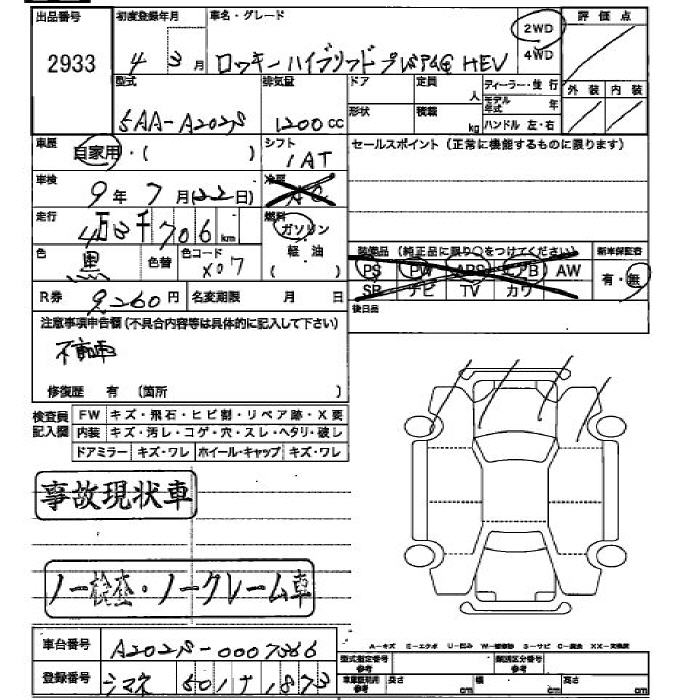 出品番号 初度登録年月 車名・グレード 2WD 評価点
2933 4年3月 ロッキー ハイブリッド プレミアムG HEV 4WD
型式 排気量 ドア 定員 人 ディーラー・並行 外装 内装
5AA-A202S 1200cc 形状 積載 kg モデル年式 年
ハンドル 左・右
車歴 自家用・( ) シフト 1AT セールスポイント(正常に機能するものに限ります)
車検 9年7月(22日) 冷房 AC
走行 4万3千706km 燃料 ガソリン
軽油
( )
色 黒 色替 色コード X07
装備品(純正品に限り○をつけてください) 新車保証書
PS PW ABS エアB AW 有・無
SR ナビ TV カワ
R券 9,260円 名変期限 月 日 後日品
注意事項申告欄(不具合内容等は具体的に記入して下さい)
不動車
修復歴 有 (箇所 )
検査員記入欄 FW キズ・飛石・ヒビ割・リペア跡・X要
内装 キズ・汚レ・コゲ・穴・スレ・ヘタリ・破レ
ドアミラー キズ・ワレ ホイール・キャップ キズ・ワレ
事故現状車
ノー検査・ノークレーム車
車台番号 A202S-0007366
A-キズ E-エクボ U-凹み W-補修跡 S-サビ C-腐食 XX-交換済
型式指定番号 参考 類別区分番号 参考
登録番号 シマネ 501 1873
車庫証明用 参考 長さ cm 幅 cm 高さ cm